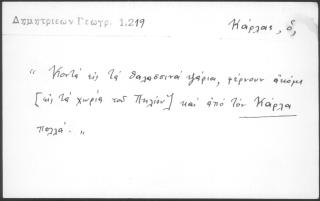 Δημητριεων Γεωγρ. 1.219
Κάρλας, ὁ,
“ Κοντὰ εἰς τὰ θαλασσινὰ ψάρια, φέρνουν ἀκόμη
[εἰς τὰ χωριὰ τοῦ Πηλίου] καὶ ἀπὸ τὸν Κάρλα
πολλά. „